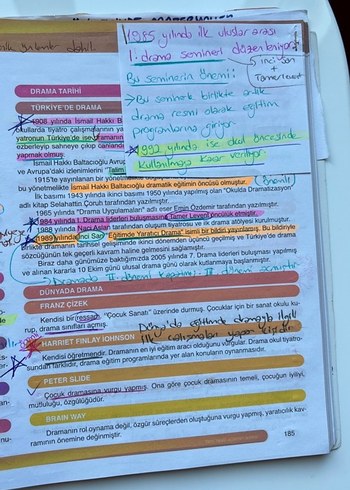 1985 yılında ilk uluslar arası
1. drama semineri düzenleniyor.
inci san
+
Tamer Levent
Bu seminerin önemi:
→ Bu seminerle birlikte artık
drama resmi olarak eğitim
programlarına giriyor.
1992 yılında ise okul öncesinde
kullanılmaya karar veriliyor.
DRAMA TARİHİ
TÜRKİYE'DE DRAMA
1908 yılında İsmail Hakkı B
okullarda tiyatro çalışmalarının ya
yatronun Türkiye'de ise
ezberleyip sahneye çıkıp canland
yapmak olmuş.
İsmail Hakkı Baltacıoğlu Avrup
ve Avrupa'daki izlenimlerini "Talim
1915'te yayınlanan bir yönetme
bu yönetmelikte İsmail Hakkı Baltacıoğlu dramatik eğitimin öncüsü olmuştur.
İlk basımı 1943 yılında ikinci basımı 1950 yılında yapılmış olan "Okulda Dramatizasyon"
adlı kitap Selahattin Çoruh tarafından yazılmıştır.
1965 yılında "Drama Uygulamaları" adlı eser Emin Özdemir tarafından yazılmıştır.
984 yılında 1. Drama liderleri buluşmasına Tamer Levent öncülük etmiştir.
1988 yılında Naci Aslan tarafından oluşum tiyatrosu ve ilk drama atölyesi kurulmuştur.
1989 yılında İnci San "Eğitimde Yaratıcı Drama" isimli bir bildiri yayınlamış. Bu bildiriyle
birlikte dramanın tarihsel gelişiminde ikinci dönemden üçüncü geçilmiş ve Türkiye'de drama
sözcüğünün tek geçerli kavram haline gelmesini sağlamıştır.
Biraz daha günümüze baktığımızda 2005 yılında 7. Drama liderleri buluşması yapılmış
ve alınan kararla 10 Ekim günü ulusal drama günü olarak kutlanmaya başlanmıştır.
DÜNYADA DRAMA
FRANZ ÇIZEK
Kendisi bir ressam. "Çocuk Sanatı" üzerinde durmuş. Çocuklar için bir sanat okulu ku-
rup, drama sınıfları açmış.
HARRIET FINLAY JOHNSON
Kendisi öğretmendir. Dramanın en iyi eğitim aracı olduğunu vurgular. Drama okul tiyatro-
sundan farklıdır, drama eğitim programlarında yer alan konuların oynanmasıdır.
PETER SLIDE
Çocuk dramasına vurgu yapmış. Ona göre çocuk dramasının temeli, çocuğun iyiliği,
mutluluğu, özgülüğüdür.
BRIAN WAY
Dramanın rol oynama değil, özgür süreçlerden oluştuğuna vurgu yapmış, yaratıcılık kav-
ramının önemine değinmiştir.
185